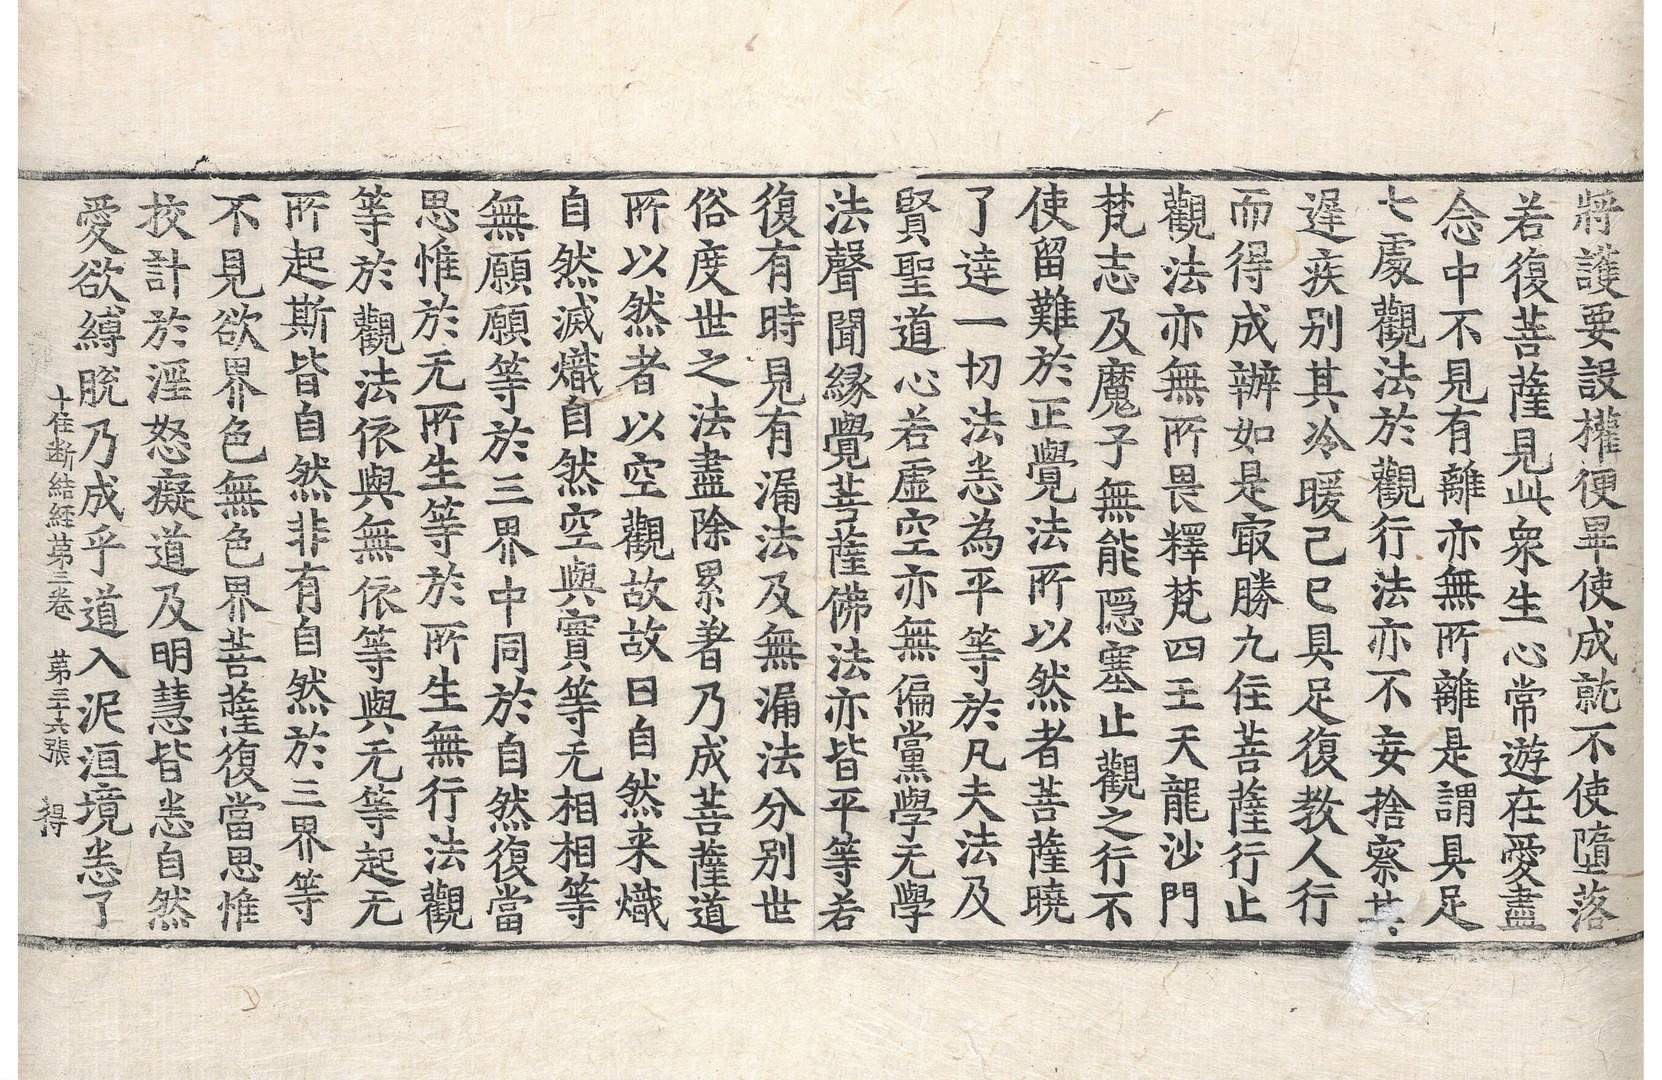 將護要設權便畢使成就不使墮落
若復菩薩見此衆生心常遊在愛盡
念中不見有離亦無所離是謂具足
七處觀法於觀行法亦不妄捨察其
遲疾别其冷暖己巳具足復教人行
而得成辦如是㝡勝九住菩薩行止
觀法亦無所畏釋梵四王天龍沙門
梵志及魔子無能隱塞止觀之行不
使留難於正覺法所以然者菩薩曉
了達一切法悉為平等於凡夫法及
賢聖道心若虛空亦無偏黨學无學
法聲聞緣覺菩薩佛法亦皆平等若
復有時見有漏法及無漏法分别世
俗度世之法盡除累著乃成菩薩道
所以然者以空觀故故曰自然来熾
自然滅熾自然空與實等无相相等
無願願等於三界中同於自然復當
思惟於无所生等於所生無行法觀
等於觀法依與無依等與无等起无
所起斯皆自然非有自然於三界等
不見欲界色無色界菩薩復當思惟
挍計於淫怒癡道及明慧皆悉自然
愛欲縛脫乃成乎道入泥洹境悉了
十住断結経第三卷　第三十六張　得